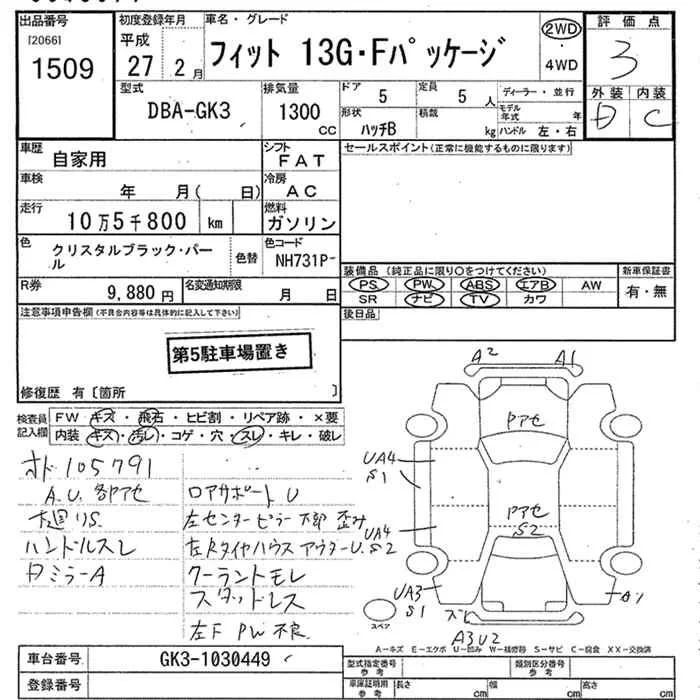 出品番号
[2066]
1509
初度登録年月
平成
27 2月
車名・グレード
フィット 13G・Fパッケージ
2WD
・
4WD
評価点
3
外装 内装
D C
型式
DBA-GK3
排気量
1300
cc
ドア
5
定員
5 人
ディーラー・並行
形状
ハッチB
積載
kg
モデル年式 年
ハンドル 左・右
車歴
自家用
シフト
FAT
セールスポイント(正常に機能するものに限ります)
車検
年 月( 日)
冷房
AC
走行
10万5千800 km
燃料
ガソリン
色
クリスタルブラック・パール
色替
色コード
NH731P-
R券
9,880円
名変通知期限
月 日
装備品(純正品に限り○をつけてください)
新車保証書
PS PW ABS エアB AW
有・無
SR ナビ TV カワ
後日品
注意事項申告欄(不具合内容等は具体的に記入して下さい)
第5駐車場置き
修復歴 有〔箇所 〕
検査員記入欄
FW キズ・飛石・ヒビ割・リペア跡・×要
内装 キズ・汚レ・コゲ・穴・スレ・キレ・破レ
オド105791
A.U. 各アセ
ハンドルスレ
ミラーA
ロアサポートU
左センターピラー下部 歪み
左Rタイヤハウス アウターU.
クーラントモレ
スタッドレス
左F PW不良
A2 A1
アセ
UA4
S1
アセ
S2
UA4
S2
UA3
S1
ズレ
スペア
A3U2
A-キズ E-エクボ U-凹み W-補修跡 S-サビ C-腐食 XX-交換済
車台番号
GK3-1030449
登録番号
型式指定番号
類別区分番号
車庫証明用参考
長さ cm
幅 cm
高さ cm